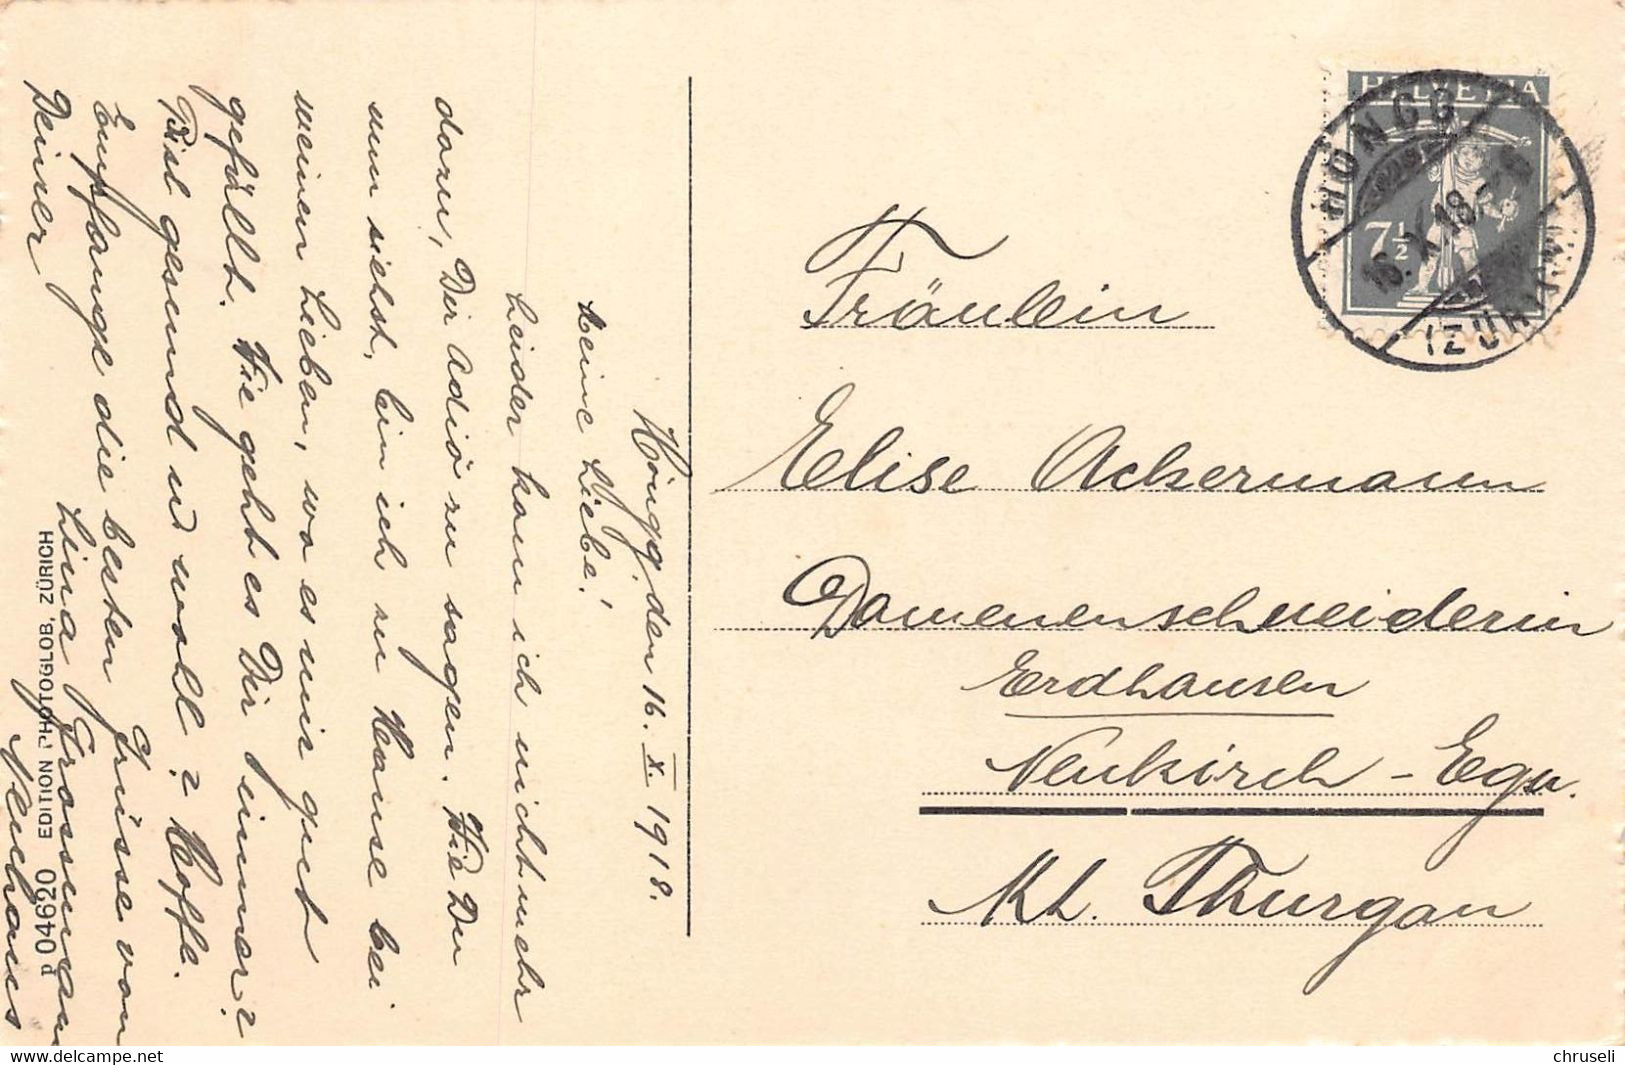 Höngg, den 16. X. 1918.
Meine Liebe!
Leider kam ich nicht mehr
dazu, Dir Adiö zu sagen. Wie Du
nun siehst, bin ich zu Hause bei
meinen Lieben, wo es mir gut
gefällt. Wie geht es Dir immer?
Bist gesund u. wohl? Hoffe.
Empfange die besten Grüsse von
Deiner
Lina Grossmann
Neuhaus
P 04620 EDITION PHOTOGLOB, ZÜRICH
HELVETIA
7½
HÖNGG
16. X. 18.
(ZÜRICH)
Fräulein
Elise Ackermann
Damenenschneiderin
Erdhausen
Neukirch - Egn.
Kt. Thurgau
delcampe.net
chruseli